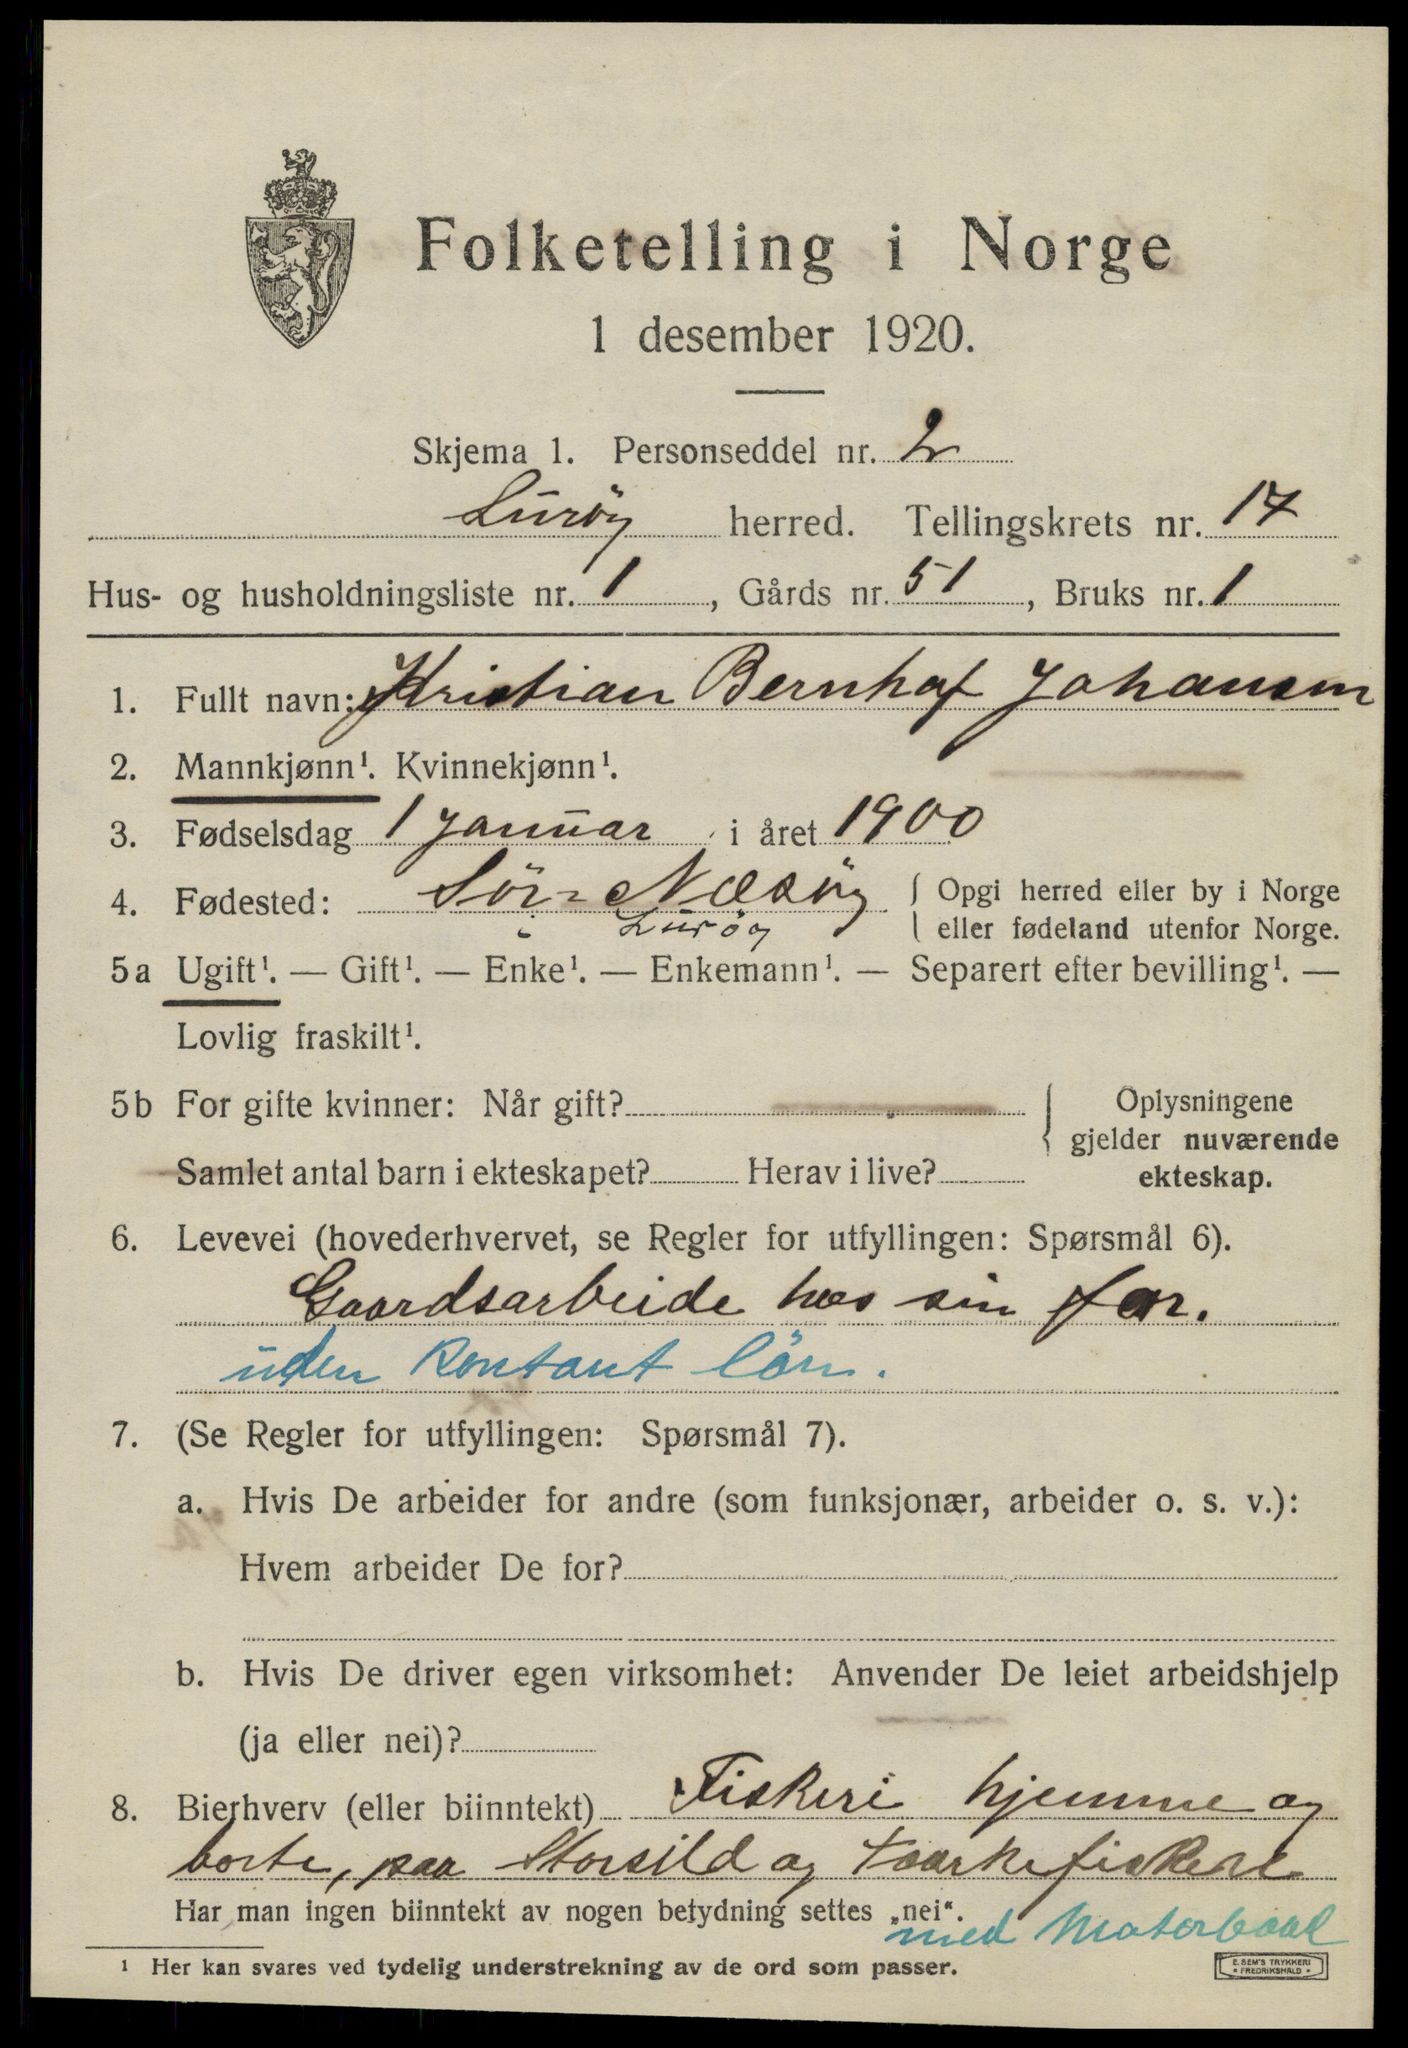 Folketelling i Norge
1 desember 1920.
Skjema 1. Personseddel nr. 2
Lurøy herred. Tellingskrets nr. 17
Hus- og husholdningsliste nr. 1, Gårds nr. 51, Bruks nr. 1
1. Fullt navn: Kristian Bernhof Johansen
2. Mannkjønn¹. Kvinnekjønn¹.
3. Fødselsdag 1 Januar i året 1900
4. Fødested: Sör-Næsöy { Opgi herred eller by i Norge
i Luröy eller fødeland utenfor Norge.
5a Ugift¹. — Gift¹. — Enke¹. — Enkemann¹. — Separert efter bevilling¹. —
Lovlig fraskilt¹.
5b For gifte kvinner: Når gift? { Oplysningene
gjelder nuværende
Samlet antal barn i ekteskapet? Herav i live? ekteskap.
6. Levevei (hovederhvervet, se Regler for utfyllingen: Spørsmål 6).
Gaardsarbeide hos sin far.
uden kontant lön.
7. (Se Regler for utfyllingen: Spørsmål 7).
a. Hvis De arbeider for andre (som funksjonær, arbeider o. s. v.):
Hvem arbeider De for?
b. Hvis De driver egen virksomhet: Anvender De leiet arbeidshjelp
(ja eller nei)?
8. Bierhverv (eller biinntekt) Fiskeri hjemme og
borte, paa Storsild og Taarkefiskeri
Har man ingen biinntekt av nogen betydning settes „nei“.
med Motorbaat
¹ Her kan svares ved tydelig understrekning av de ord som passer.
E. SEM'S TRYKKERI
* FREDRIKSHALD *